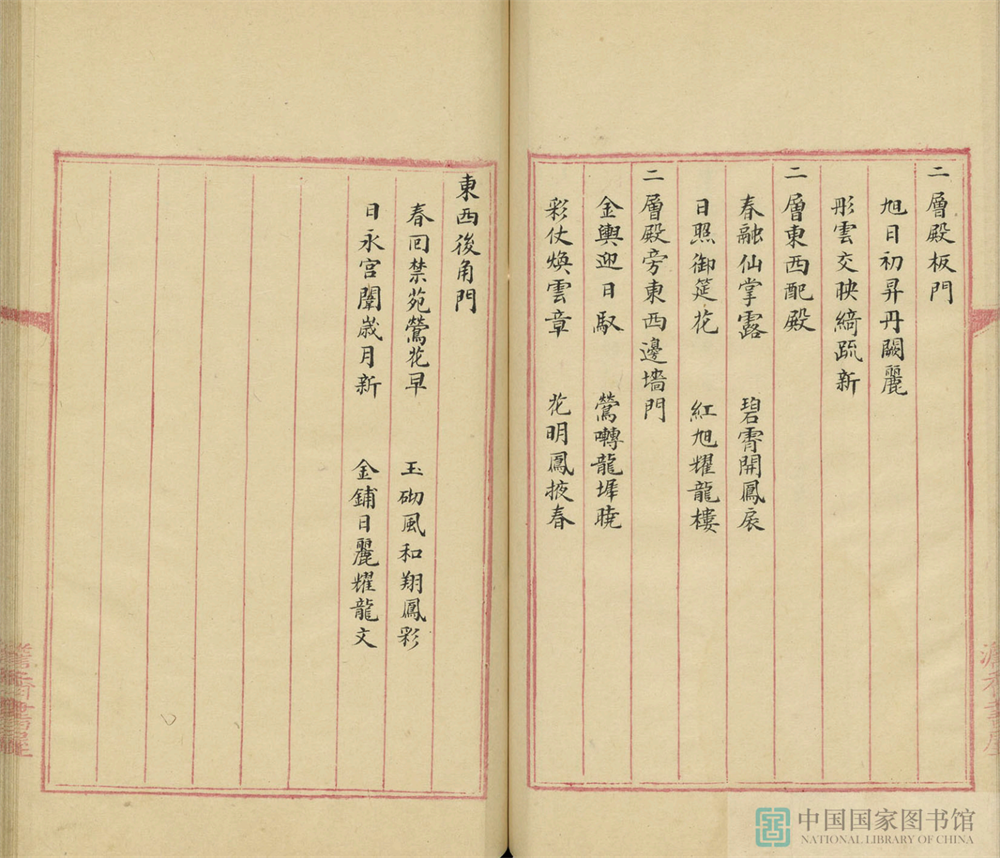 二層殿板門
旭日初昇丹闕麗
彤雲交映綺疏新
二層東西配殿
春融仙掌露 碧霄開鳳扆
日照御筵花 紅旭耀龍樓
二層殿旁東西邊墻門
金輿迎日馭 鶯囀龍墀曉
彩仗煥雲章 花明鳳掖春
東西後角門
春回禁苑鶯花早 玉砌風和翔鳳彩
日永宫闈歲月新 金鋪日麗耀龍文
中国国家图书馆
NATIONAL LIBRARY OF CHINA